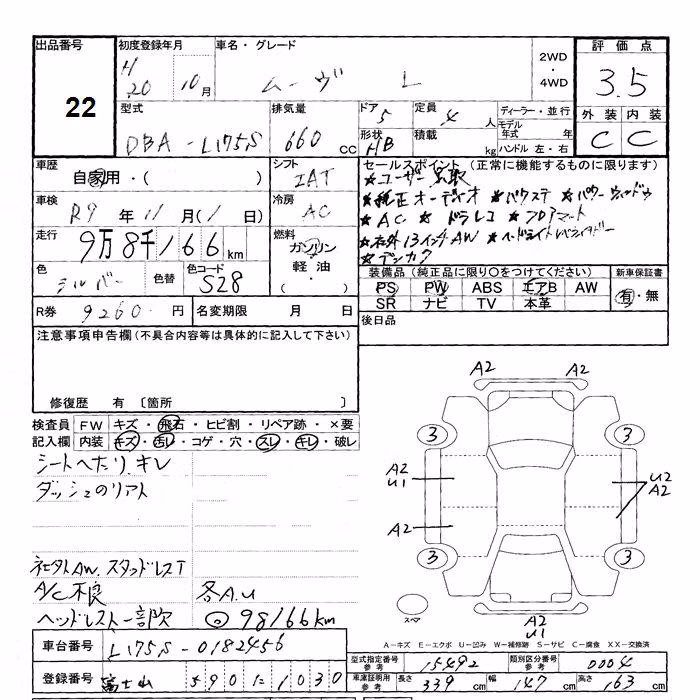 出品番号
22
初度登録年月
H 20 10月
車名・グレード
ムーヴ L
2WD・4WD
評価点
3.5
外装 内装
C C
型式
DBA-L175S
排気量
660 cc
ドア 5
定員 4 人
形状 HB
積載 kg
ディーラー・並行
モデル年式 年
ハンドル 左・右
車歴
自家用・( )
シフト
IAT
セールスポイント (正常に機能するものに限ります)
★ユーザー買取
★純正オーディオ ★パワステ ★パワーウィンドウ
★AC ★ドラレコ ★フロアマット
★社外13インチAW ★ヘッドライトレベライザー
車検
R9年11月(1日)
冷房
AC
走行
9万8千166km
燃料
ガソリン
軽油・
( )
色
シルバー
色替
色コード
S28
装備品 (純正品に限り○をつけてください)
PS PW ABS エアB AW
SR ナビ TV 本革
新車保証書
有・無
R券 9260円
名変期限 月 日
後日品
注意事項申告欄 (不具合内容等は具体的に記入して下さい)
修復歴 有 〔箇所 〕
検査員記入欄
FW キズ・飛石・ヒビ割・リペア跡・×要
内装 キズ・汚レ・コゲ・穴・スレ・キレ・破レ
シートへたり、キレ
ダッシュのリアト
社外AW、スタッドレスT
A/C不良 各A.U
ヘッドレスト一部欠 ◎98166km
A2 A2
3 3
A2
U1
U2
A2
A2
3 3
スペア
A2
U1
A-キズ E-エクボ U-凹み W-補修跡 S-サビ C-腐食 XX-交換済
車台番号 L175S-0182456
型式指定番号 参考 15492
類別区分番号 参考 0004
登録番号 富士山 590に1030
車庫証明用 参考 長さ 339cm 幅 147cm 高さ 163cm